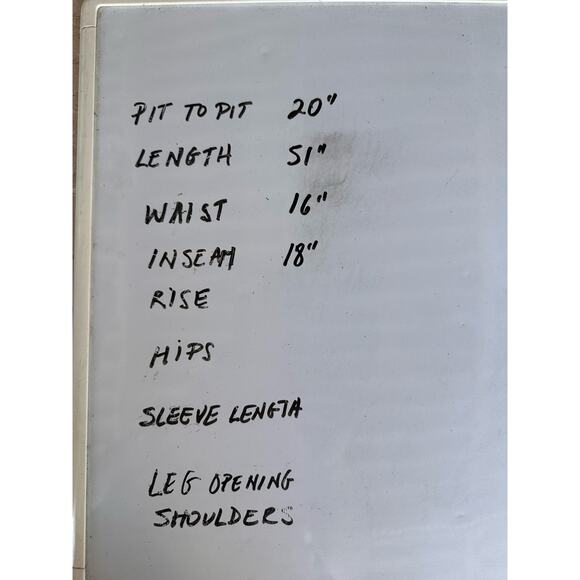 PIT TO PIT 20"
LENGTH 51"
WAIST 16"
INSEAM 18"
RISE
HIPS
SLEEVE LENGTH
LEG OPENING
SHOULDERS